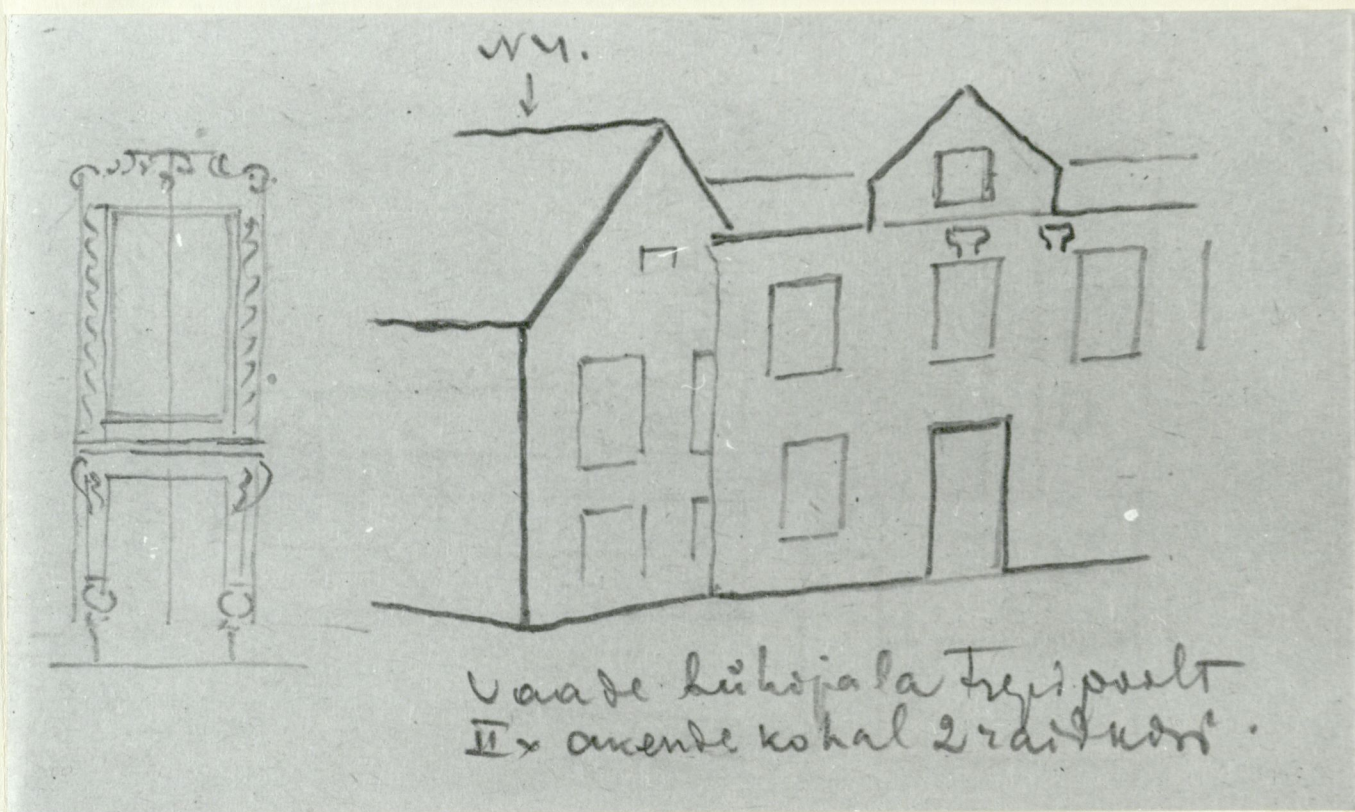 N 4.
Vaade Lühijala Trepi poolt
IIx akende kohal 2 raidkivi.